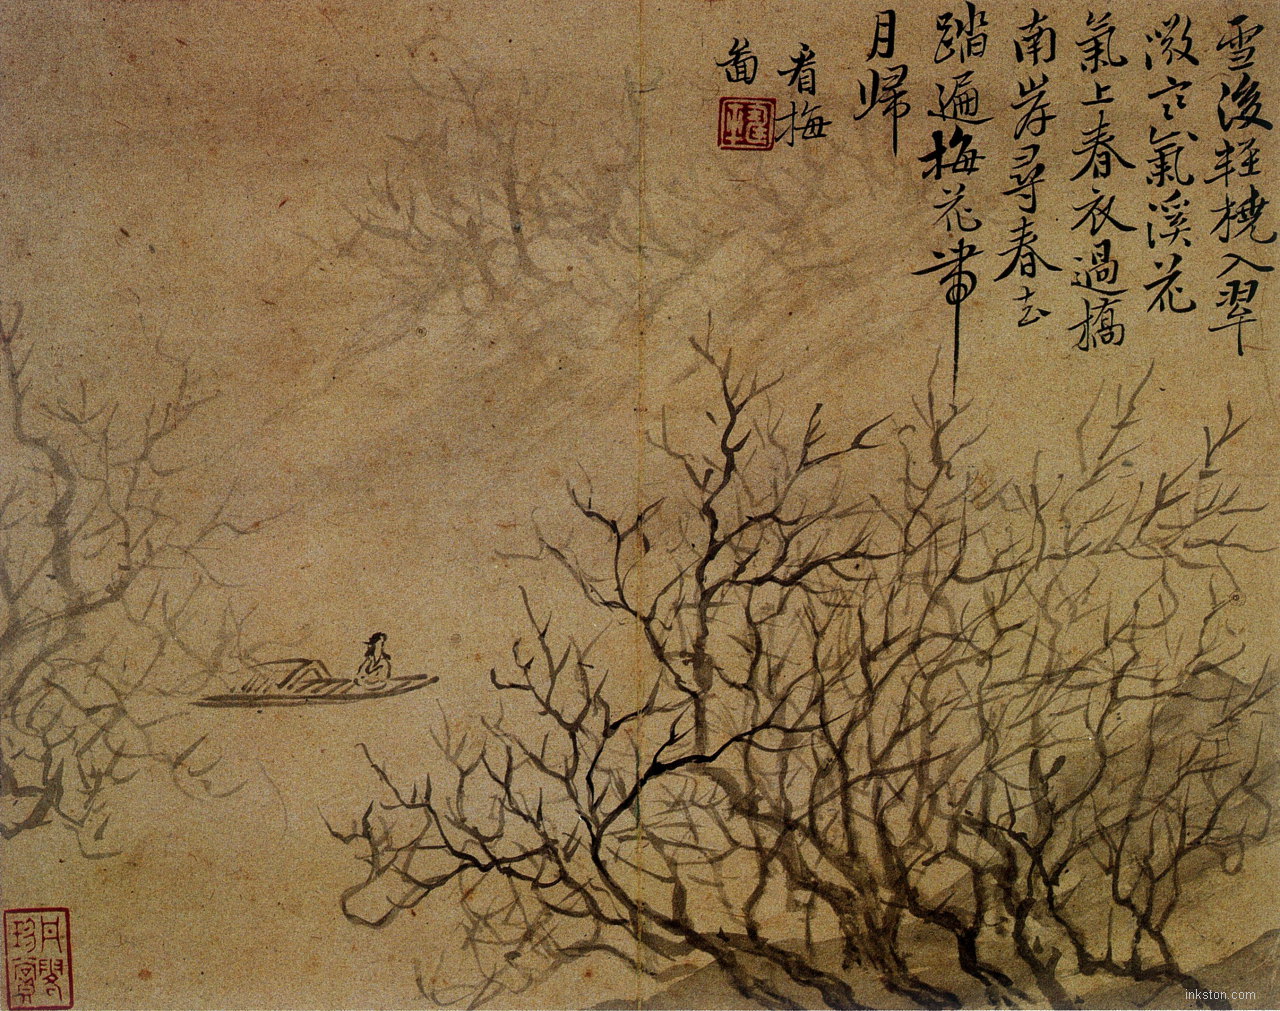 雪後輕橈入翠
微寒氣溪花
氣上春衣過橋
南岸尋春去
踏遍梅花帶
月歸
看梅
啚
inkston.com